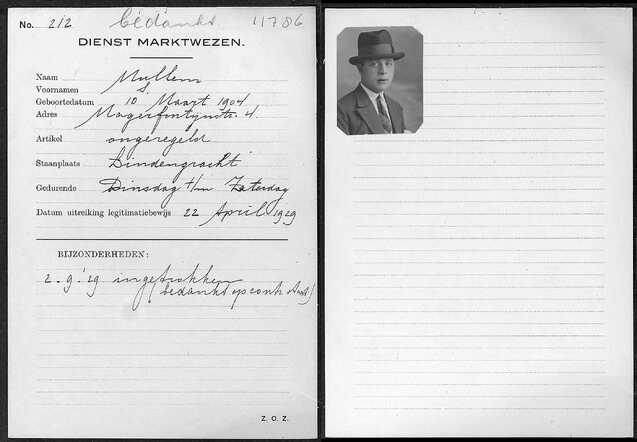 No. 212 bedankt 11786
DIENST MARKTWEZEN.
Naam Mullem
Voornamen S.
Geboortedatum 10 Maart 1904
Adres 4.
Artikel ongeregeld
Staanplaats Lindengracht
Gedurende Dinsdag t/m Zaterdag
Datum uitreiking legitimatiebewijs 22 April 1929
BIJZONDERHEDEN:
2-9-'29 ingetrokken
(bedankt op contr.
Z. O. Z.